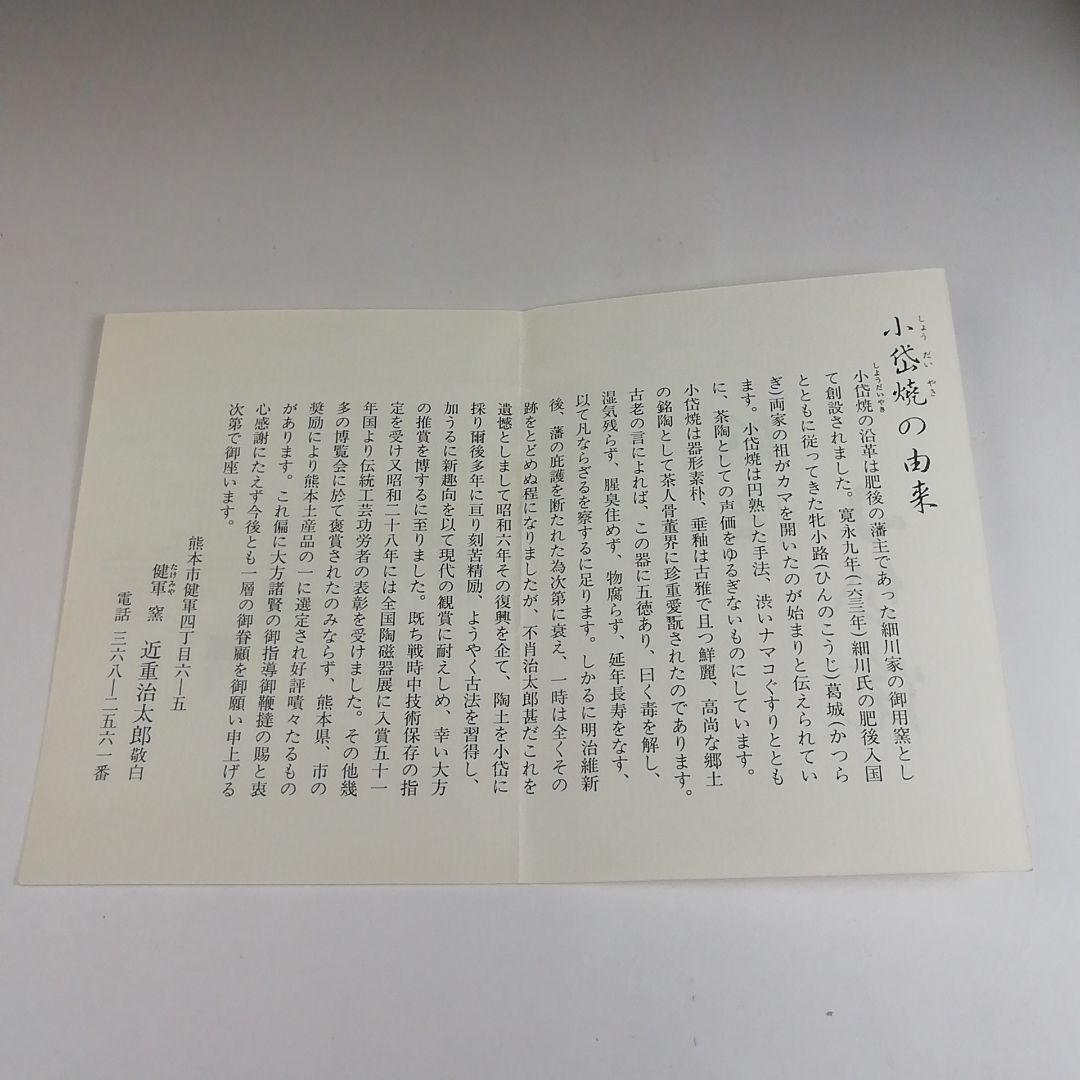 小岱焼の由来
しょうだいやき
しようだいやき
小岱焼の沿革は肥後の藩主であった細川家の御用窯とし
て創設されました。寛永九年(一六三三年)細川氏の肥後入国
とともに従ってきた牝小路(ひんのこうじ)葛城(かつら
ぎ)両家の祖がカマを開いたのが始まりと伝えられてい
ます。小岱焼は円熟した手法、渋いナマコぐすりととも
に、茶陶としての声価をゆるぎないものにしています。
小岱焼は器形素朴、垂釉は古雅で且つ鮮麗、高尚な郷土
の銘陶として茶人骨董界に珍重愛翫されたのであります。
古老の言によれば、この器に五徳あり、曰く毒を解し、
湿気残らず、腥臭住めず、物腐らず、延年長寿をなす、
以て凡ならざるを察するに足ります。しかるに明治維新
後、藩の庇護を断たれた為次第に衰え、一時は全くその
跡をとどめぬ程になりましたが、不肖治太郎甚だこれを
遺憾としまして昭和六年その復興を企て、陶土を小岱に
採り爾後多年に亘り刻苦精励、ようやく古法を習得し、
加うるに新趣向を以て現代の観賞に耐えしめ、幸い大方
の推賞を博するに至りました。既ち戦時中技術保存の指
定を受け又昭和二十八年には全国陶磁器展に入賞五十一
年国より伝統工芸功労者の表彰を受けました。その他幾
多の博覧会に於て褒賞されたのみならず、熊本県、市の
奨励により熊本土産品の一に選定され好評嘖々たるもの
があります。これ偏に大方諸賢の御指導御鞭撻の賜と衷
心感謝にたえず今後とも一層の御眷顧を御願い申上げる
次第で御座います。
熊本市健軍四丁目六―五
たけみや
健軍窯 近重治太郎敬白
電話 三六八―二五六一番